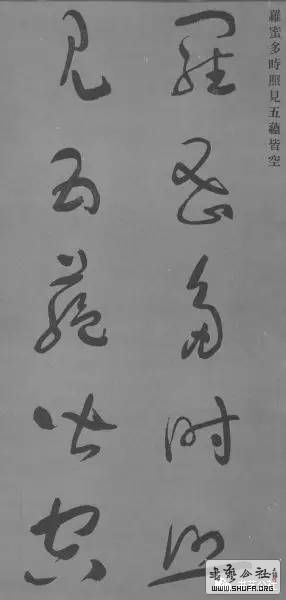 羅蜜多時照見五蘊皆空
羅蜜多時照
見五蘊皆空
书艺公社
WWW.SHUFA.ORG